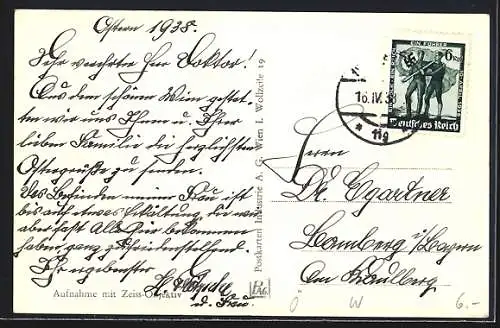 Ostern 1938.
Sehr verehrter Herr Doktor!
Aus dem schönen Wien gestat-
ten wir uns Ihnen u. Ihrer
lieben Familie die herzlichsten
Ostergrüße zu senden.
Das Befinden meiner Frau ist
bis auf etwas Erkältung, die wir
aber fast alle hier bekommen
haben ganz zufriedenstellend.
Ihr ergebenster
u. Frau.
Aufnahme mit Zeiss-Objektiv
Postkarten Industrie A. G. Wien I. Wollzeile 19
PAG
16.IV.38
* 11g
EIN FÜHRER
6
Deutsches Reich
Herrn
Dr. Egartner
Bamberg i/Bayern
Am Kraulberg
Ö W 6.-